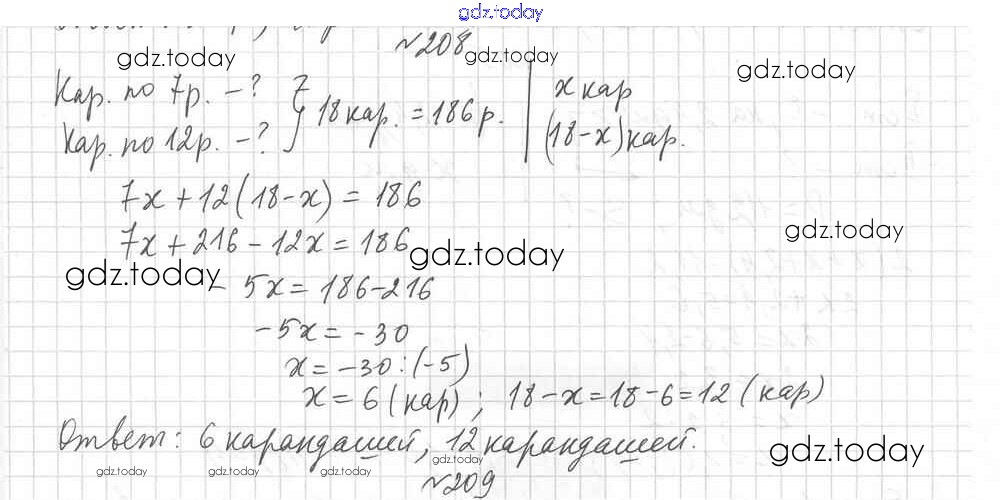 gdz.today
№208
gdz.today gdz.today gdz.today
Кар. по 7р. – ? } 18 кар. = 186 р. | x кар
Кар. по 12р. – ? (18 – x) кар.
7x + 12(18 – x) = 186
7x + 216 – 12x = 186
gdz.today gdz.today gdz.today
– 5x = 186 – 216
– 5x = – 30
x = – 30 : (– 5)
x = 6 (кар) ; 18 – x = 18 – 6 = 12 (кар)
Ответ: 6 карандашей, 12 карандашей.
gdz.today gdz.today gdz.today gdz.today
№209